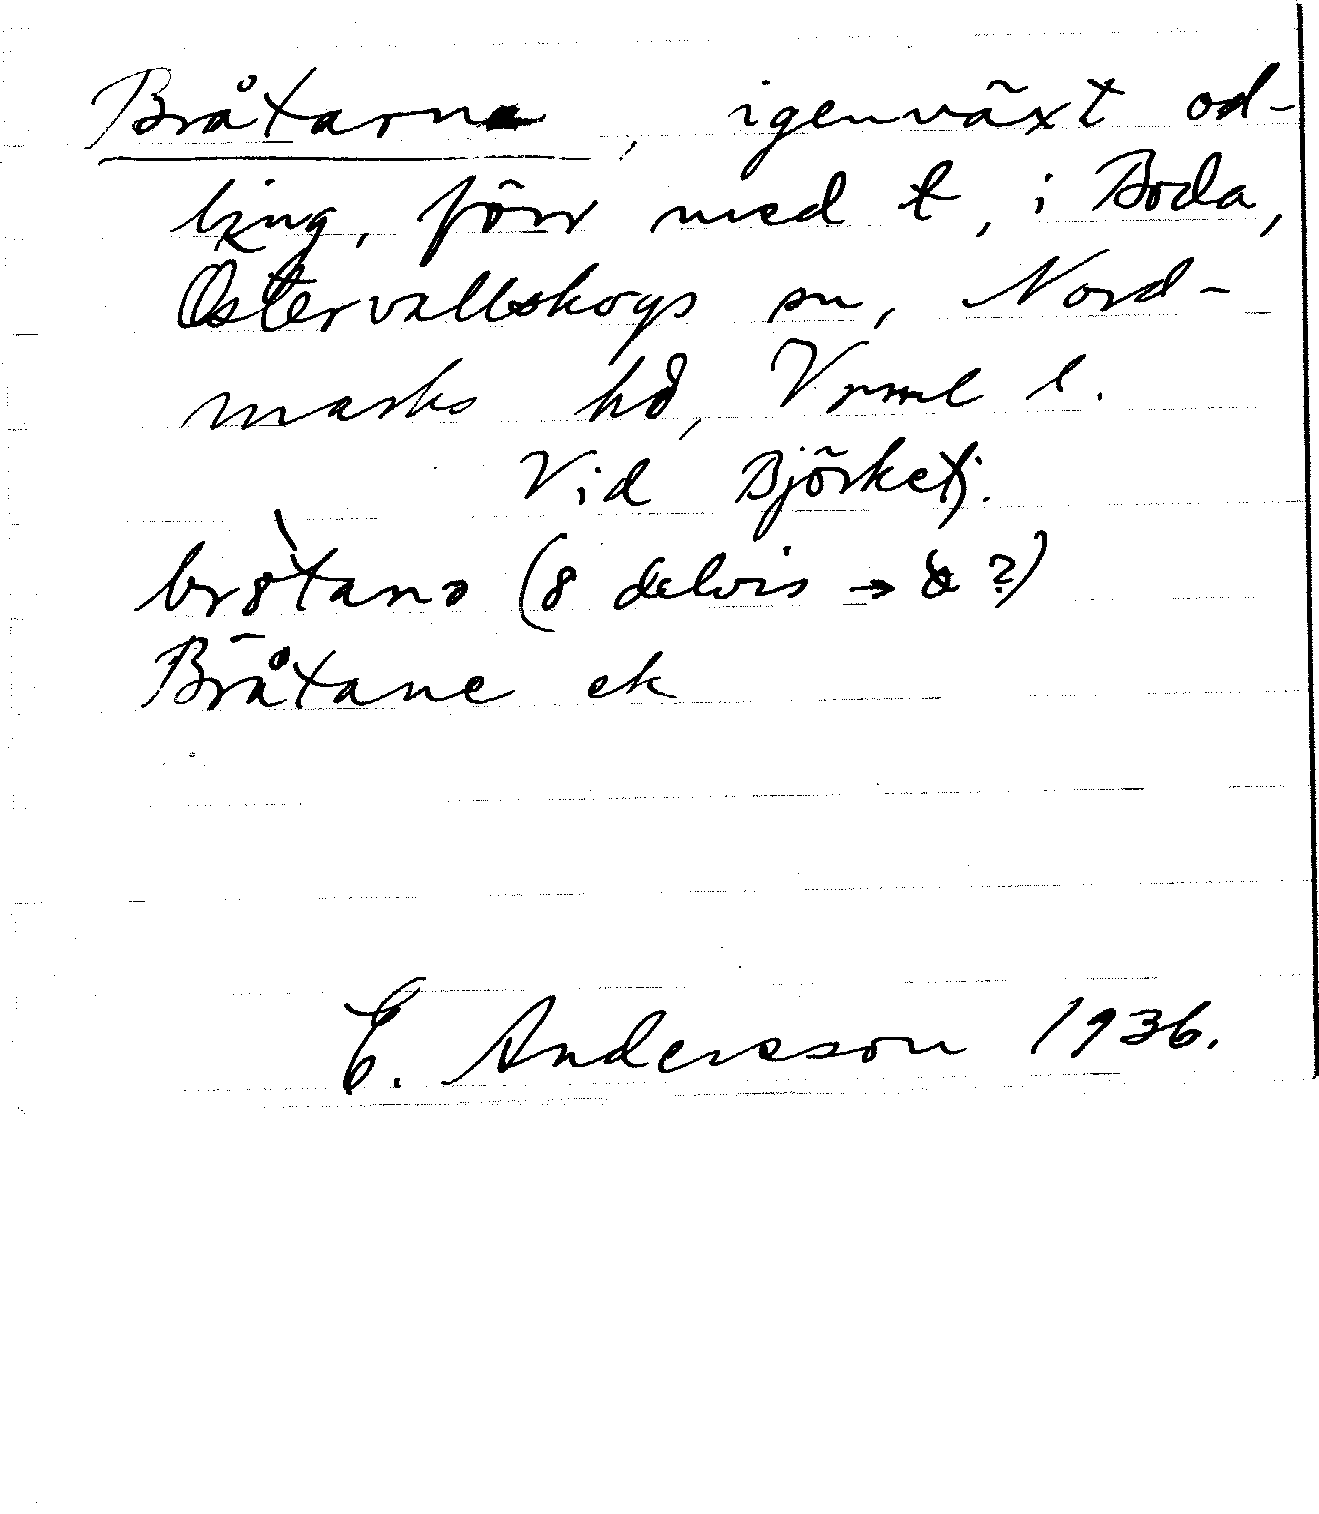 Bråtarna, igenväxt od-
ling, förr med t, i Boda,
Östervallskogs sn, Nord-
marks hd, Vrml l.
Vid Björketj.
br8̀tanə (8 delvis →   ?)
Bråtane ek
E. Andersson 1936.